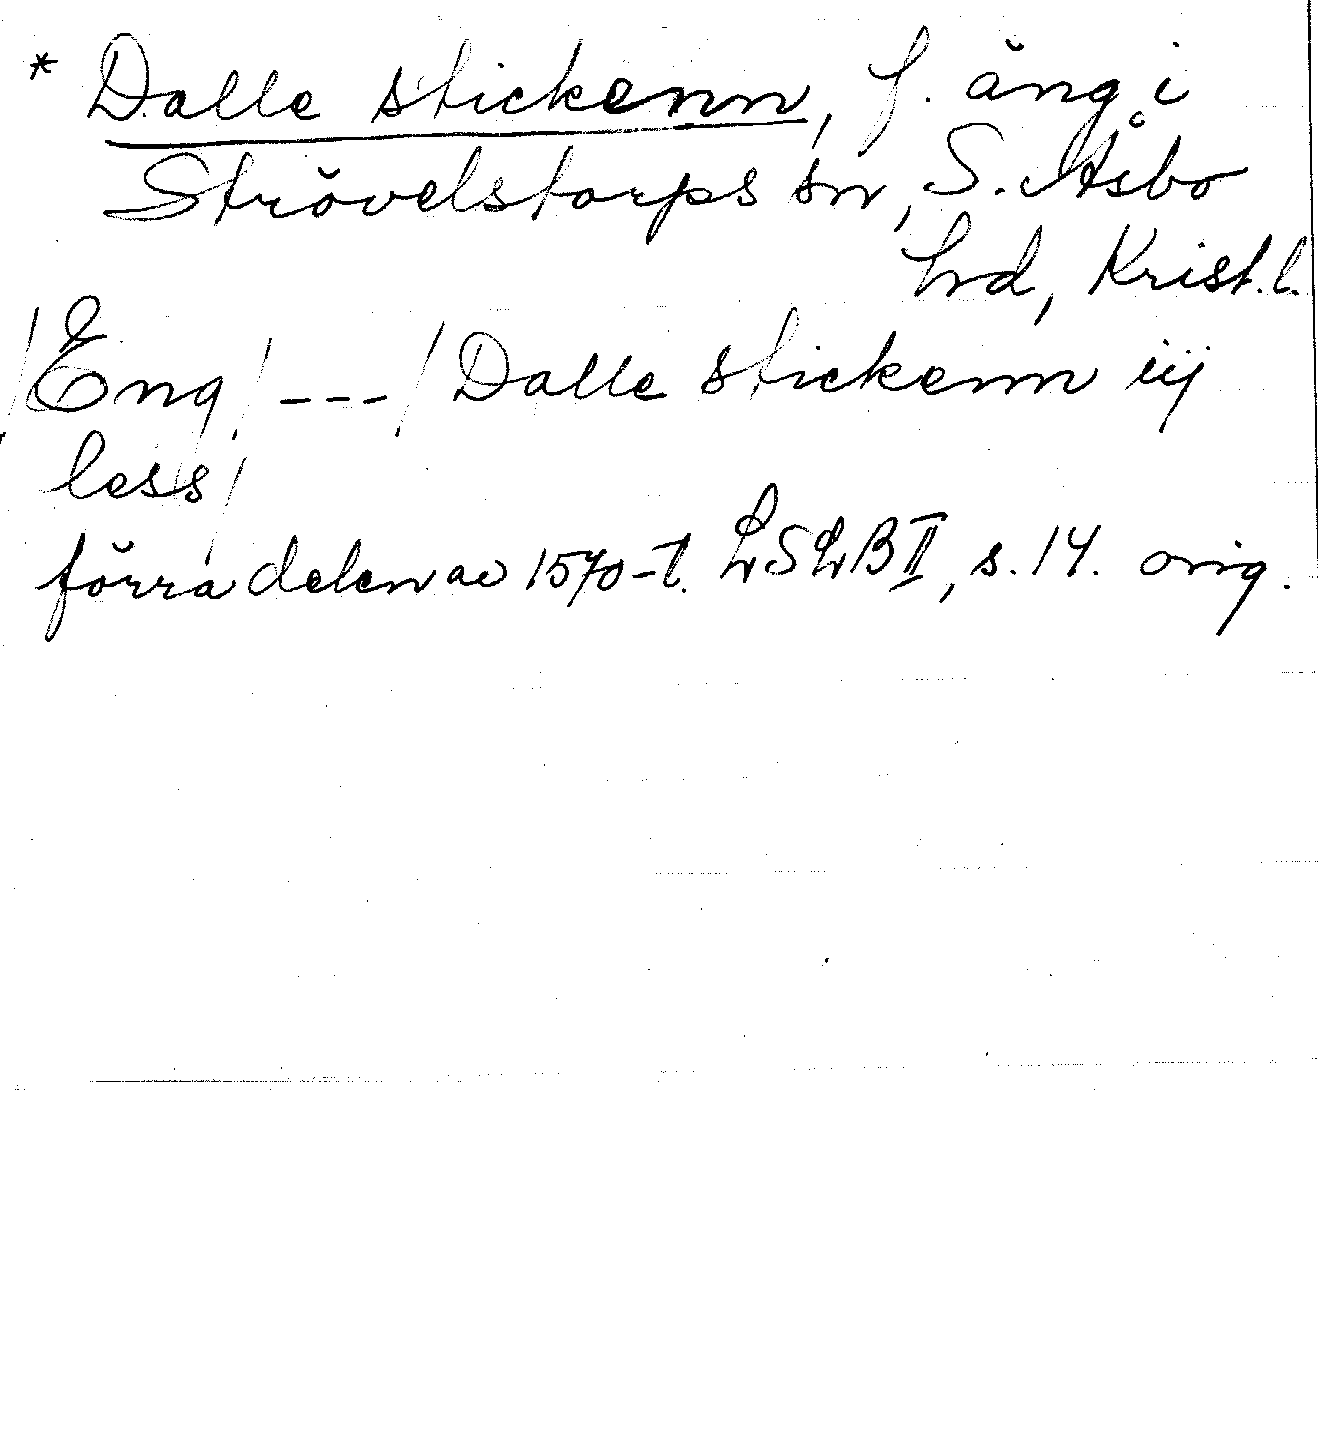 * Dalle stickenn, f. äng i
Strövelstorps sn, S. Åsbo
hd, Krist. l.
/Eng/ --- / Dalle stickenn iij
less/
förra delen av 1570-t. LSLB II, s. 14. orig.